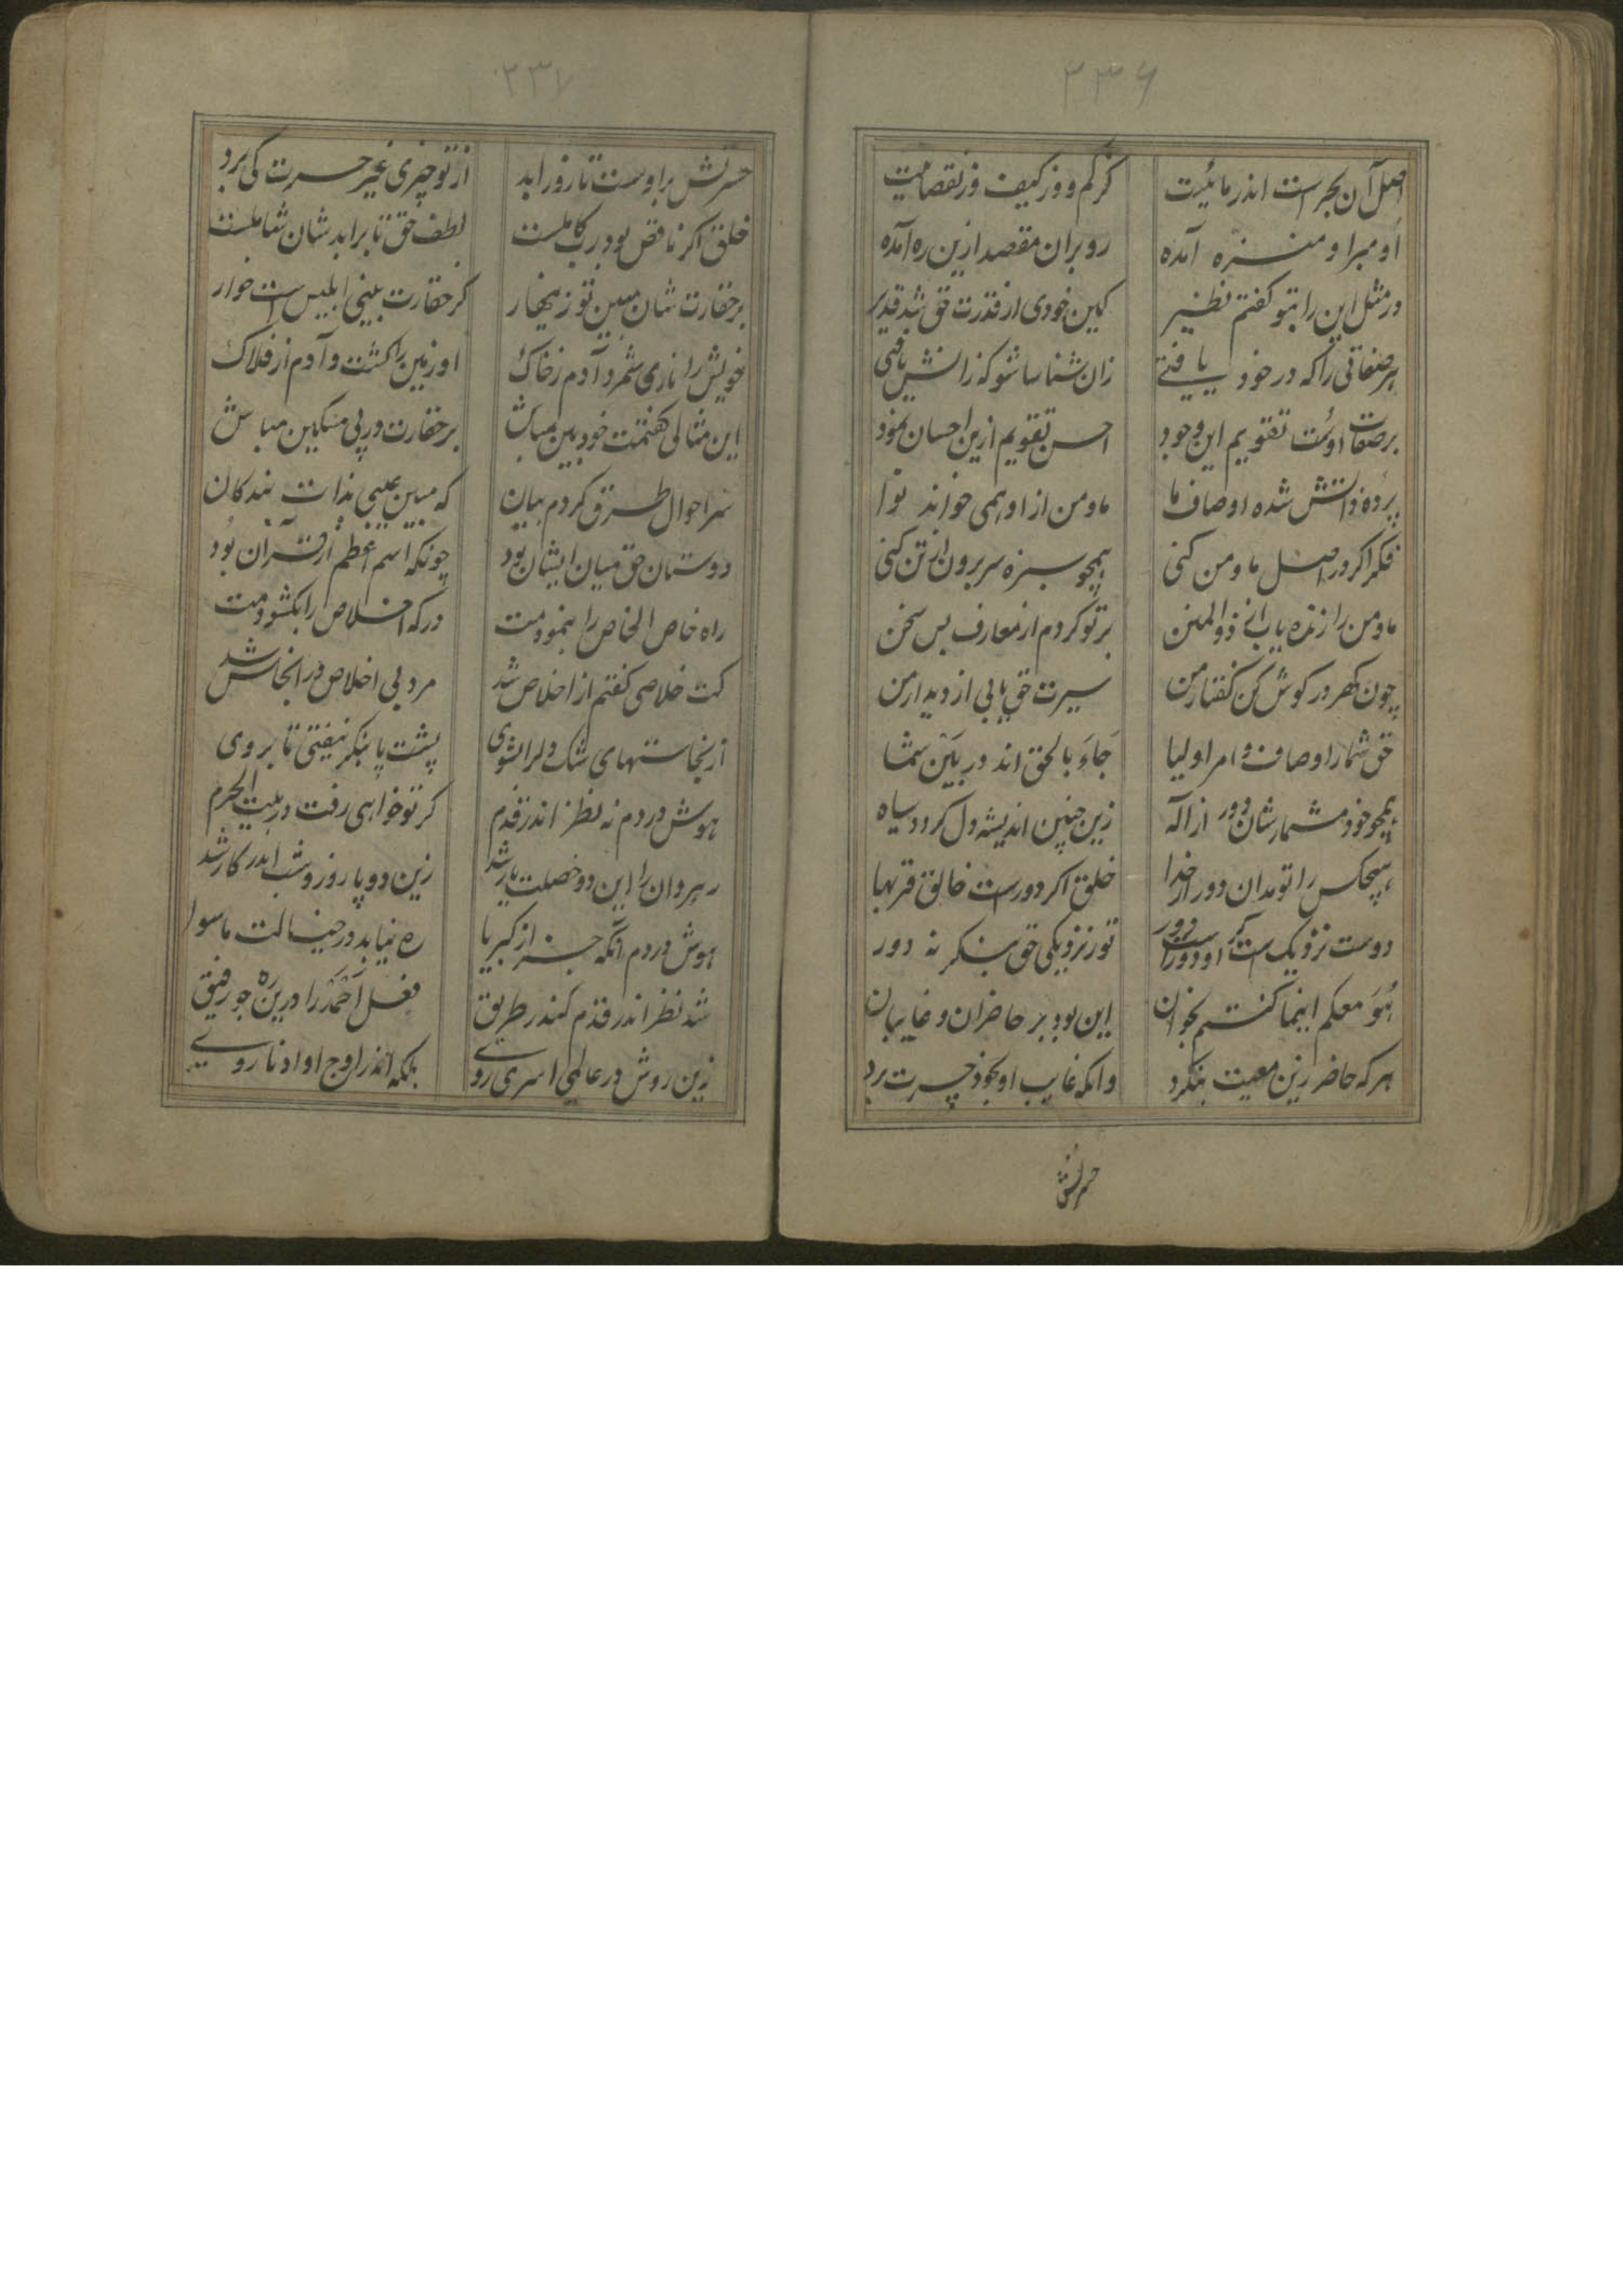 ۳۳۶
اصل آن بحر است اندر مائیت گر کم و وز کیف وز نقصانیت
او مبرا و منزه آمده رو بران مقصد ازین ره آمده
در مثل این را بتو کفتم نظیر کین خودی از قدرت حق شد قدیر
هر صفاتی را که در خود یافتی زان شناسا شو که زانش یافتی
بر صفات اوست تقویم این وجود احسن تقویم ازین احسان نمود
پرده ذاتش شده اوصاف ما ما و من از او همی خواند نوا
فکر اکر در اصل ما و من کنی همچو سبزه سر برون از تن کنی
ما و من را زنده یاب از ذوالمنن بر تو کردم از معارف بس سخن
چون کهر در کوش کن کفتار من سیرت حق یابی از دیدار من
حق شمار اوصاف و امر اولیا جاءَ بالحق اند در بین شما
همچو خود مشمارشان دور از اله زین چنین اندیشه دل کردد سیاه
هیچکس را تو مدان دور از خدا خلق اکر دورست خالق قربها
دوست نزدیک است کر او دورست دور تو ز نزدیکی حق بنکر نه دور
هُوَ معکم اینما کنتم بخوان این بود بر حاضران و غایبان
هر که حاضر زین معیت بنکرد وانکه غایب او بخود حسرت برد
حسرتش
۳۳۷
حسرتش بر اوست تا روز ابد از تو چیزی غیر حسرت کی برد
خلق اکر ناقص بود رب کاملست لطف حق تا بر ابد شان شاملست
بر حقارت شان مبین تو زینهار کز حقارت بینی ابلیس است خوار
خویش را ناری شمرد آدم ز خاک او زمین را کشت و آدم از فلاک
این مثالی کفتمت خودبین مباش بر حقارت در پی مسکین مباش
سر احوال طرق کردم بیان که مبین عیبی بذات بندکان
دوستان حق میان ایشان بود چونکه اسم اعظم از قرآن بود
راه خاص الخاص را بنمودمت در که اخلاص را بکشودمت
کت خلاصی کفتم از اخلاص شد مرد بی اخلاص در انجاس شد
از نجاستهای شک و لرا شوی پشت پا بنکر نیفتی تا بروی
هوش در دم نه نظر اندر قدم کر تو خواهی رفت در بیت الحرم
رهروان را این دو خصلت یار شد زین دو پا روز و شب اندر کار شد
هوش در دم آنکه جز از کبریا ره نیابد در خیالت ماسوا
شد نظر اندر قدم کندر طریق فعل احمد را درین ره جو رفیق
زین روش در عالمی اسری روی بلکه اندر اوج او ادنا روی